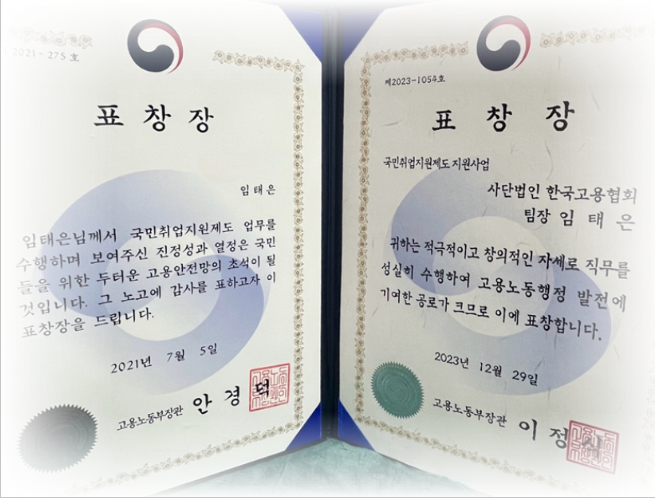 2021-275 호
표 창 장
임 태 은
임태은님께서 국민취업지원제도 업무를
수행하며 보여주신 진정성과 열정은 국민
들을 위한 두터운 고용안전망의 초석이 될
것입니다. 그 노고에 감사를 표하고자 이
표창장을 드립니다.
2021년 7월 5일
고용노동부장관 안 경 덕
제2023-1054호
표 창 장
국민취업지원제도지원사업
사단법인 한국고용협회
팀장 임 태 은
귀하는 적극적이고 창의적인 자세로 직무를
성실히 수행하여 고용노동행정 발전에
기여한 공로가 크므로 이에 표창합니다.
2023년 12월 29일
고용노동부장관 이 정 식